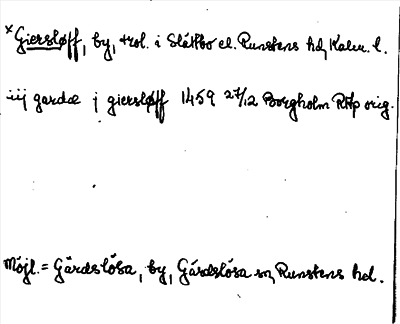 *Giersløff, by, trol. i Slättbo el. Runstens hd, Kalm. l.
iiij gardæ j giersløff 1459 27/12 Borgholm RAp orig.
Möjl. = Gärdslösa, by, Gärdslösa sn, Runstens hd.